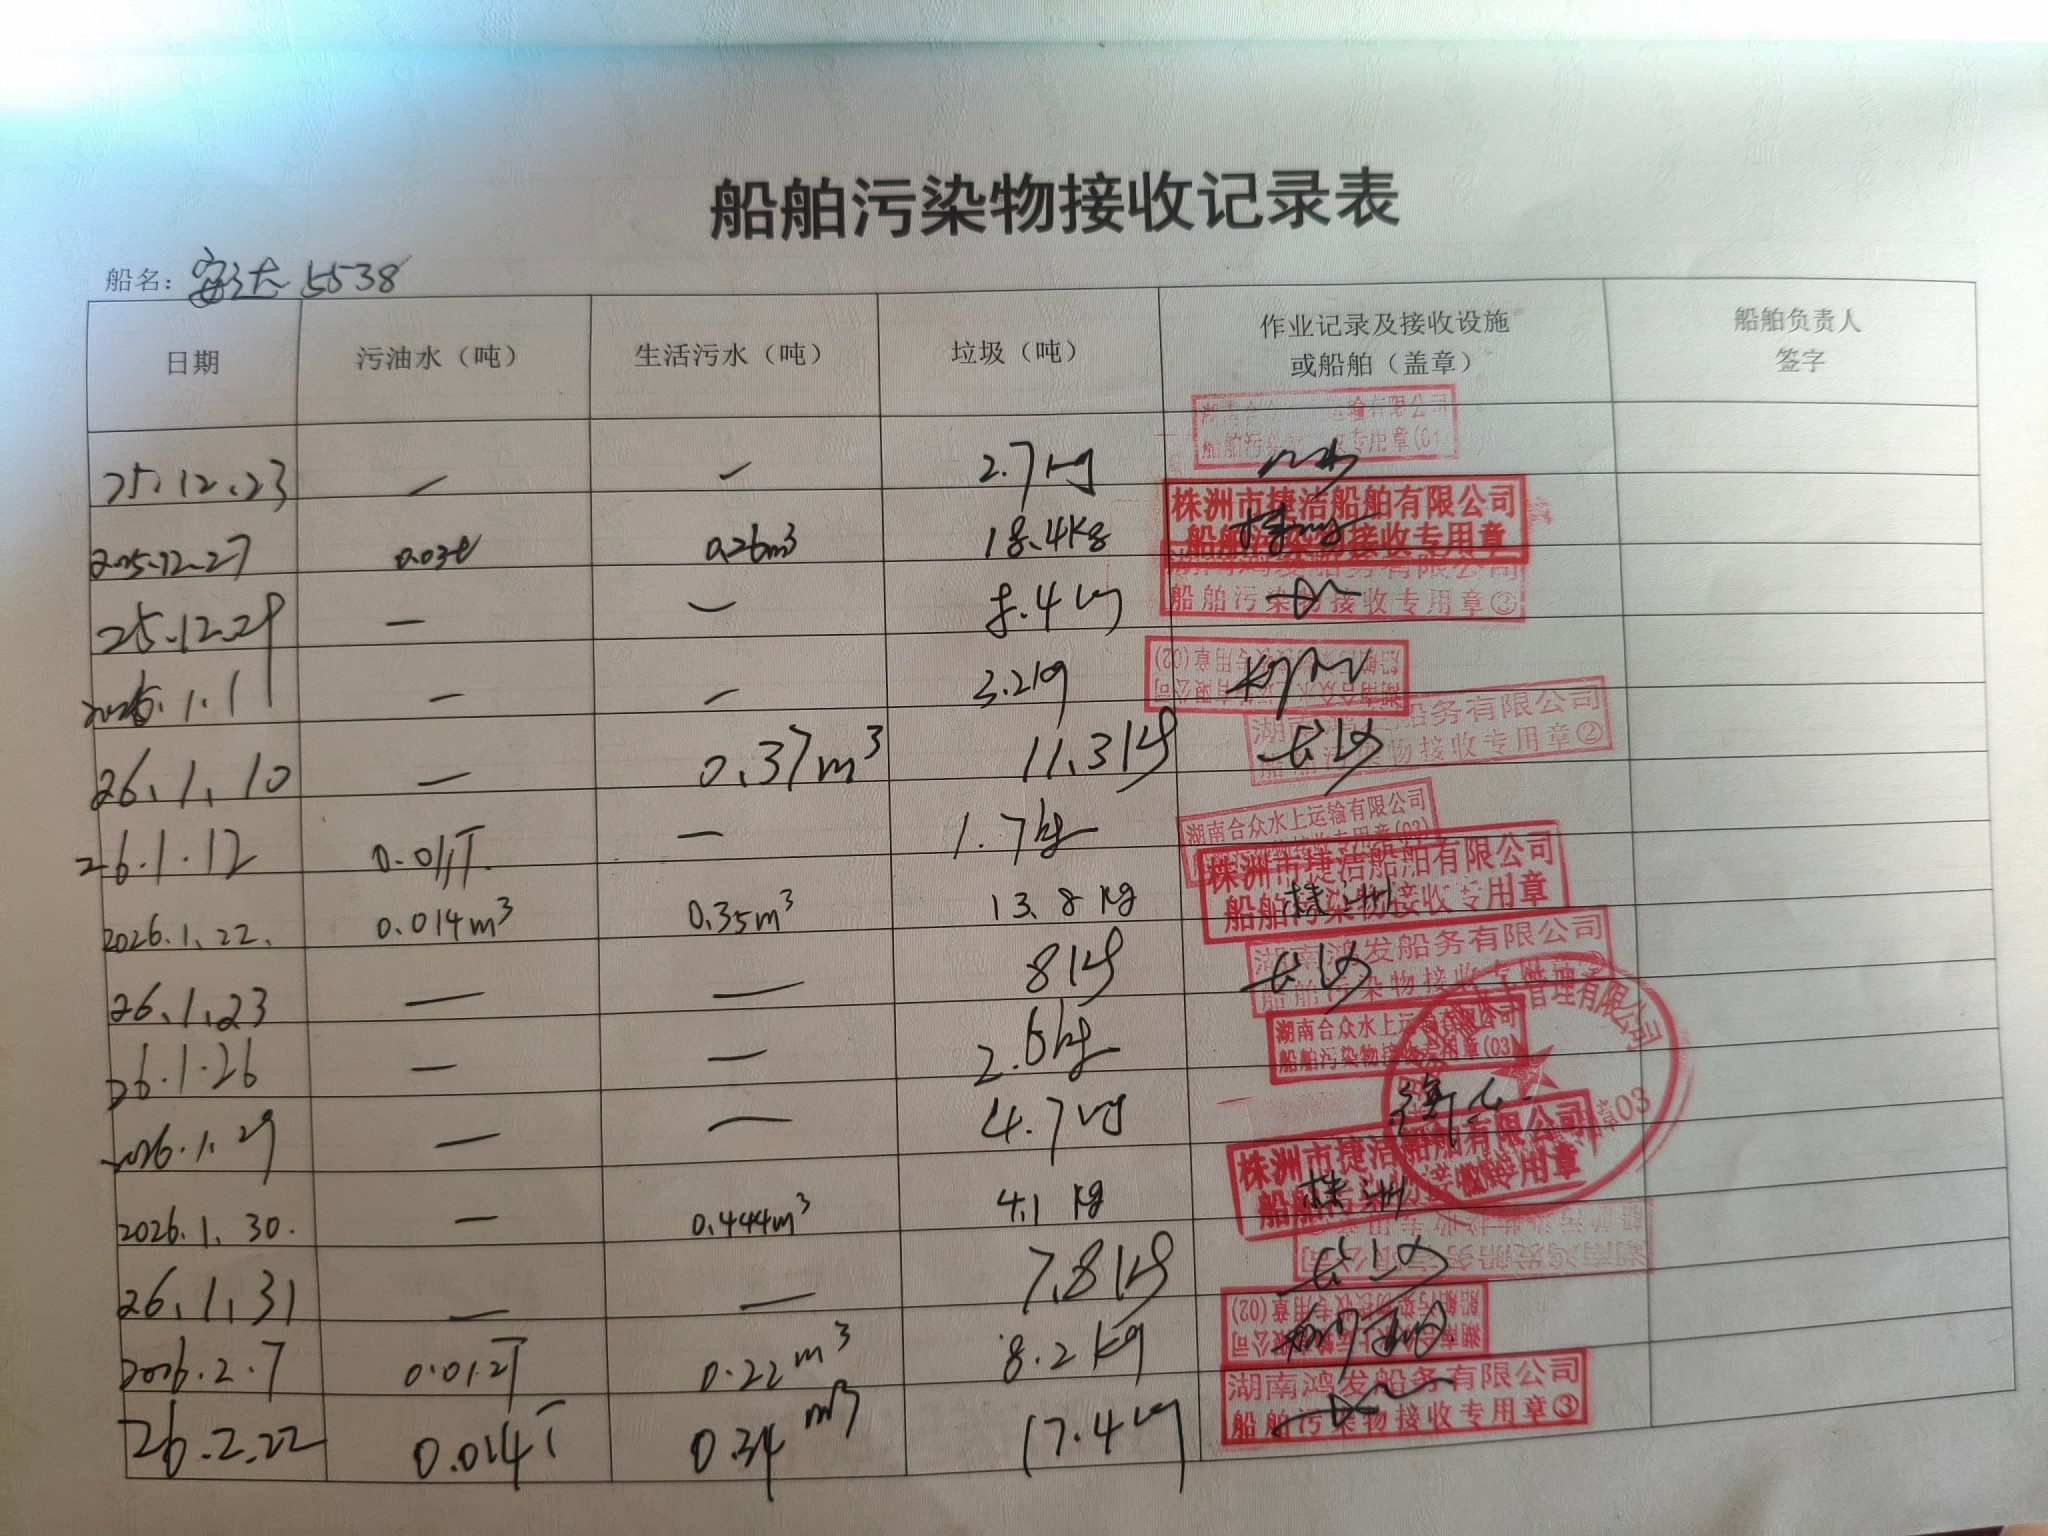 船舶污染物接收记录表
船名：安达5538
日期 污油水（吨） 生活污水（吨） 垃圾（吨） 作业记录及接收设施或船舶（盖章） 船舶负责人签字
25.12.23 — — 2.7kg
船舶污染 专用章(01
2025.12.27 0.03t 0.26m³ 18.4Kg
株洲市捷洁船舶有限公司
船舶污染物接收专用章
25.12.29 — — 8.4kg
船舶污染物接收专用章③
2026.1.1 — — 3.2kg
26.1.10 — 0.37m³ 11.3kg 长沙
船务有限公司
船舶污染物接收专用章②
26.1.12 0.01T — 1.7kg
湖南合众水上运输有限公司
2026.1.22. 0.014m³ 0.35m³ 13.8kg 株洲
株洲市捷洁船舶有限公司
船舶污染物接收专用章
26.1.23 — — 8kg 长沙
湖南鸿发船务有限公司
船舶污染物接收专用章
26.1.26 — — 2.6kg
湖南合众水上运输有限公司
船舶污染物接收专用章(03)
2026.1.29 — — 4.7kg
管理有限公司
章03
2026.1.30. — 0.444m³ 4.1kg 株洲
株洲市捷洁船舶有限公司
船舶污染物接收专用章
26.1.31 — — 7.8kg 长沙
湖南鸿发船务有限公司
2026.2.7 0.012T 0.22m³ 8.2kg
湖南合众水上运输有限公司
船舶污染物接收专用章(02)
26.2.22 0.014T 0.34m³ 17.4kg
湖南鸿发船务有限公司
船舶污染物接收专用章③